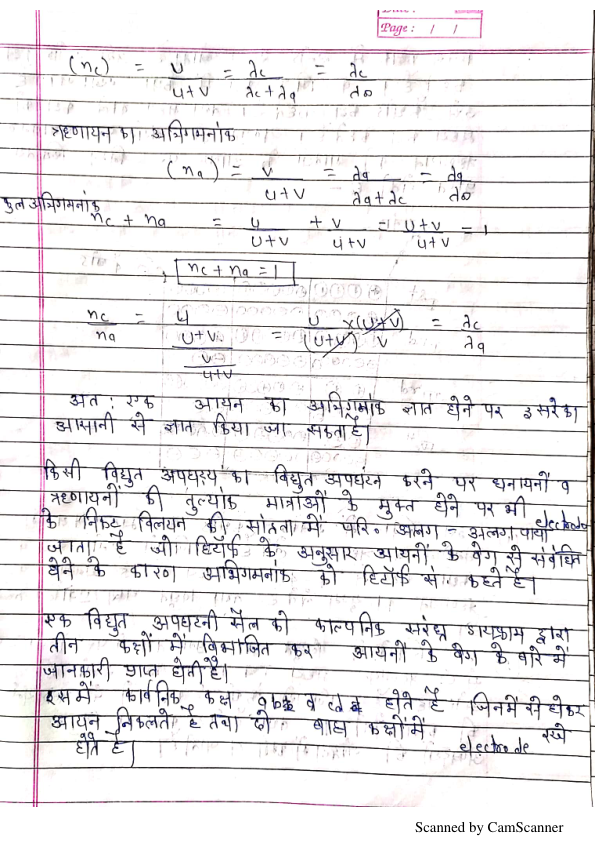 Page: / /
(nc) = U/(U+V) = λc/(λc+λa) = λc/λ∞
ऋणायन का अभिगमनांक
(na) = V/(U+V) = λa/(λa+λc) = λa/λ∞
कुल अभिगमनांक
nc + na = U/(U+V) + V/(U+V) = (U+V)/(U+V) = 1
nc + na = 1
nc/na = (U/(U+V))/(V/(U+V)) = U/(U+V) × (U+V)/V = λc/λa
अत : एक आयन का अभिगमनांक ज्ञात होने पर दूसरे का
आसानी से ज्ञात किया जा सकता है।
किसी विद्युत अपघट्य का विद्युत अपघटन करने पर धनायनों व
ऋणायनों की तुल्यांक मात्राओं के मुक्त होने पर भी electrode
के निकट विलयन की सांद्रता में परि० अलग - अलग पाया
जाता है जो हिटॉर्फ के अनुसार आयनों के वेग से संबंधित
होने के कारण अभिगमनांक को हिटॉर्फ सं कहते है।
एक विद्युत अपघटनी सैल को काल्पनिक सरंध्र डायफ्राम द्वारा
तीन कक्षों में विभाजित कर आयनों के वेग के बारे में
जानकारी प्राप्त होती है।
इसमें काल्पनिक कक्ष व होते है जिनमें से होकर
आयन निकलते है तथा दो बाह्य कक्षों में electrode रखे
होते है।
Scanned by CamScanner